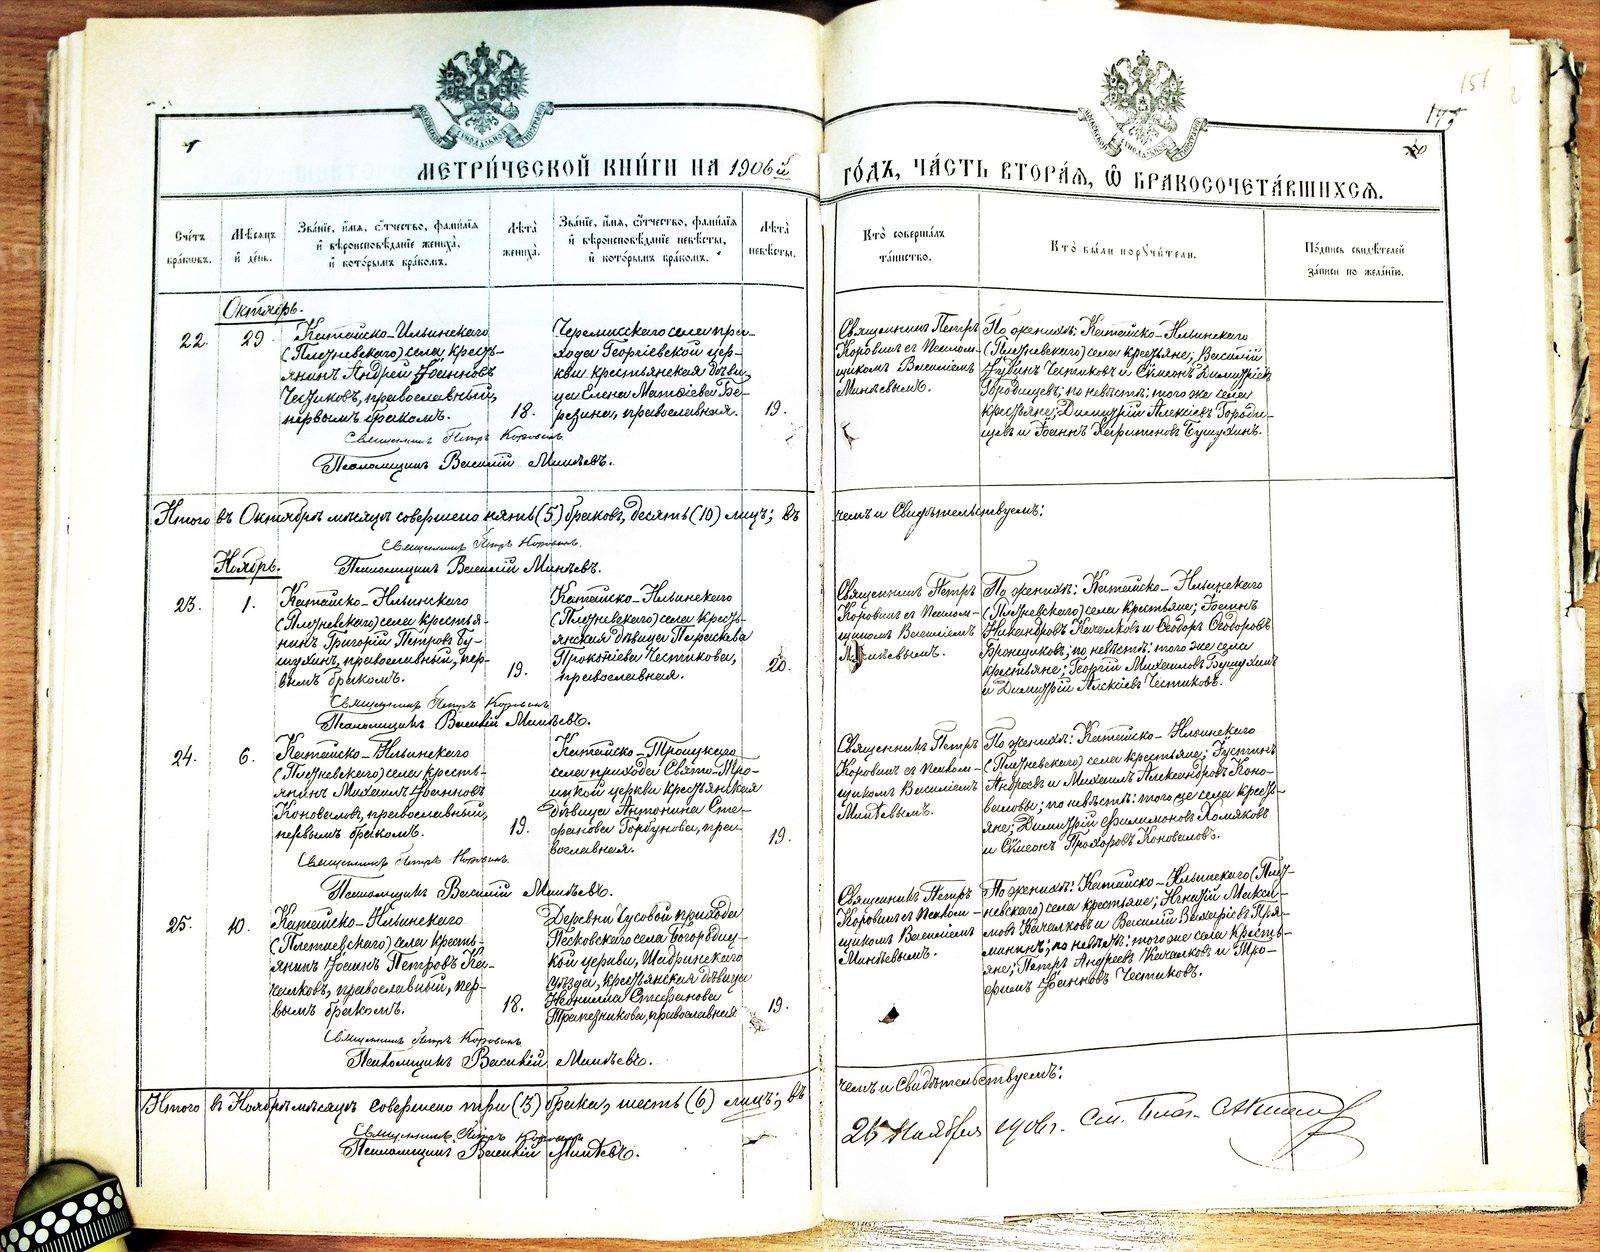 151
175
МЕТРИ́ЧЕСКОЙ КНИ́ГИ НА 1906й
ГО́ДЪ, ЧА́СТЬ ВТОРА́Я, Ѡ҆ БРАКОСОЧЕТА́ВШИХСЯ.
Сче́тъ бра́ковъ.
Мѣ́сяцъ и҆ де́нь.
Зва́нїе, и҆́мя, ѻ҆́тчество, фами́лїя
и҆ вѣроисповѣ́данїе жениха̀,
и҆ кото́рымъ бра́комъ.
Лѣ́та жениха̀.
Зва́нїе, и҆́мя, ѻ҆́тчество, фами́лїя
и҆ вѣроисповѣ́данїе невѣ́сты,
и҆ кото́рымъ бра́комъ.
Лѣ́та невѣ́сты.
Кто̀ соверша́лъ
та́инство.
Кто̀ бы́ли порꙋчи́тели.
По́дпись свидѣ́телей
за́писи по жела́нїю.
Октябрь.
22.
29
Катайско-Ильинскаго
(Плетневскаго) села кресть-
янинъ Андрей Іоанновъ
Честиковъ, православный,
первымъ бракомъ.
18.
Черемисскаго села при-
хода Георгіевской цер-
кви крестьянская дѣви-
ца Елена Матѳіева Бе-
резина, православная.
19.
Священникъ Петръ
Коровинъ съ псалом-
щикомъ Василіемъ
Минѣевымъ.
По женихѣ: Катайско-Ильинскаго
(Плетневскаго) села крестьяне; Василій
Честиковъ и Сѵмеонъ Димитріевъ
Городищевъ; по невѣстѣ: того же села
крестьяне; Димитрій Алексіевъ Городи-
щевъ и Іоаннъ Харитоновъ Бушухинъ.
Священникъ Петръ Коровинъ
Псаломщикъ Василій Минѣевъ.
Итого въ Октябрѣ мѣсяцѣ совершено пять (5) браковъ, десять (10) лицъ; въ
чемъ и Свидѣтельствуемъ:
Священникъ Петръ Коровинъ.
Псаломщикъ Василій Минѣевъ.
Ноябрь.
23.
1.
Катайско-Ильинскаго
(Плетневскаго) села крестья-
нинъ Григорій Петровъ Бу-
шухинъ, православный, пер-
вымъ бракомъ.
19.
Катайско-Ильинскаго
(Плетневскаго) села кресть-
янская дѣвица Параскева
Прокопіева Честикова,
православная.
20.
Священникъ Петръ
Коровинъ съ псалом-
щикомъ Василіемъ
Минѣевымъ.
По женихѣ: Катайско-Ильинскаго
(Плетневскаго) села крестьяне; Іоаннъ
Никандровъ Качалковъ и Ѳеодоръ Ѳеодоровъ
Бронниковъ; по невѣстѣ: того же села
крестьяне; Георгій Михаиловъ Бушухинъ
и Димитрій Алексіевъ Честиковъ.
Священникъ Петръ Коровинъ
Псаломщикъ Василій Минѣевъ.
24.
6.
Катайско-Ильинскаго
(Плетневскаго) села кресть-
янинъ Михаилъ Іоанновъ
Коноваловъ, православный,
первымъ бракомъ.
19.
Катайско-Троицкаго
села прихода Свято-Тро-
ицкой церкви крестьянская
дѣвица Антонина Сте-
фанова Горбунова, пра-
вославная.
19.
Священникъ Петръ
Коровинъ съ псалом-
щикомъ Василіемъ
Минѣевымъ.
По женихѣ: Катайско-Ильинскаго
(Плетневскаго) села крестьяне; Іустинъ
Андреевъ и Михаилъ Александровъ Коно-
валовы; по невѣстѣ: того же села кресть-
яне; Димитрій Филимоновъ Хомяковъ
и Сѵмеонъ Прохоровъ Коноваловъ.
Священникъ Петръ Коровинъ
Псаломщикъ Василій Минѣевъ.
25.
10.
Катайско-Ильинскаго
(Плетневскаго) села кресть-
янинъ Іоаннъ Петровъ Ка-
чалковъ, православный, пер-
вымъ бракомъ.
18.
Деревни Чусовой прихода
Песковскаго села Богородиц-
кой церкви, Шадринскаго
уѣзда, крестьянская дѣвица
Неонилла Стефанова
Трапезникова, православная
19.
Священникъ Петръ
Коровинъ съ псалом-
щикомъ Василіемъ
Минѣевымъ.
По женихѣ: Катайско-Ильинскаго (Плет-
невскаго) села крестьяне; Игнатій Макси-
мовъ Качалковъ и Василій Захаріевъ Пря-
манинъ; по невѣстѣ: того же села кресть-
яне; Петръ Андреевъ Качалковъ и Тро-
фимъ Іоанновъ Честиковъ.
Священникъ Петръ Коровинъ
Псаломщикъ Василій Минѣевъ.
Итого въ Ноябрѣ мѣсяцѣ совершено три (3) брака, шесть (6) лицъ; въ
чемъ и Свидѣтельствуемъ:
Священникъ Петръ Коровинъ
Псаломщикъ Василій Минѣевъ.
26 Ноября 1906 г.